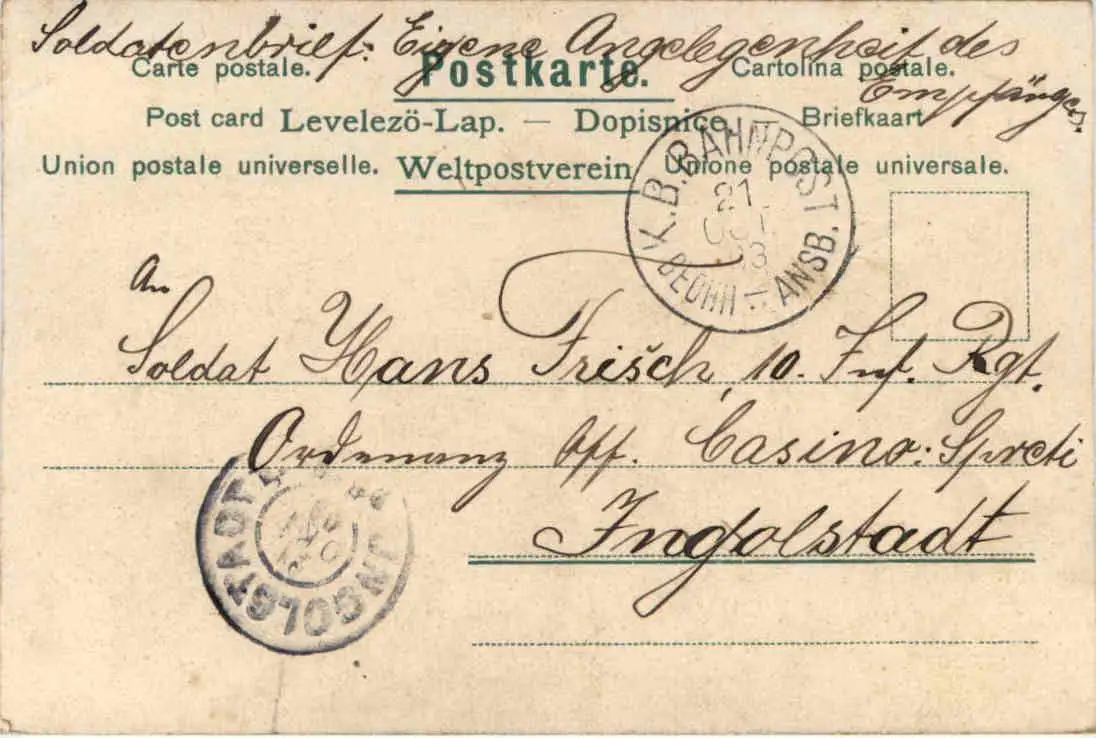 Soldatenbrief: Eigene Angelegenheit des
Empfängers.
Carte postale. Postkarte. Cartolina postale.
Post card Levelezö-Lap. — Dopisnice Briefkaart
Union postale universelle. Weltpostverein Unione postale universale.
K.B. BAHNPOST
21
ANSB.
An
Soldat Hans Frisch, 10. Inf. Rgt.
Ordonanz Off. Casino: Spreti
Ingolstadt
INGOLSTADT